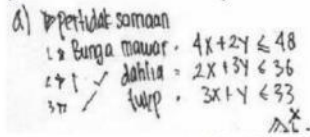 a) Pertidak samaan
Bunga mawar . 4x+2y ≤ 48
dahlia = 2x+3y ≤ 36
tulip . 3x+y ≤ 33